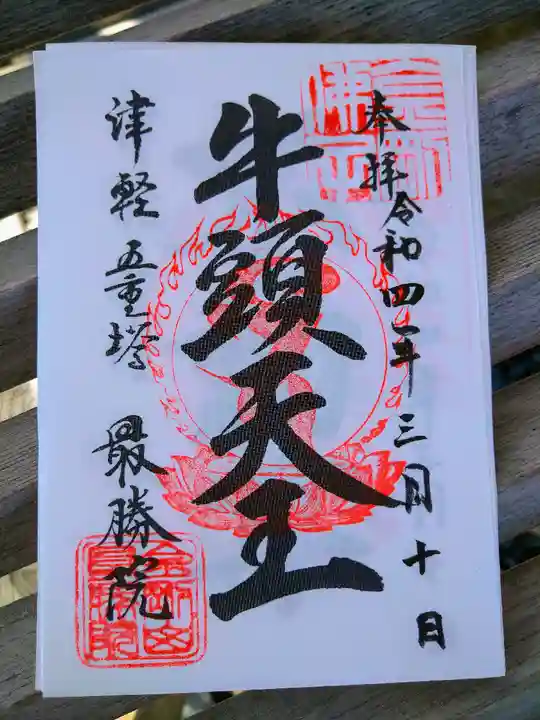 奉拝 令和四年三月十日
牛頭天王
津軽 五重塔 最勝院